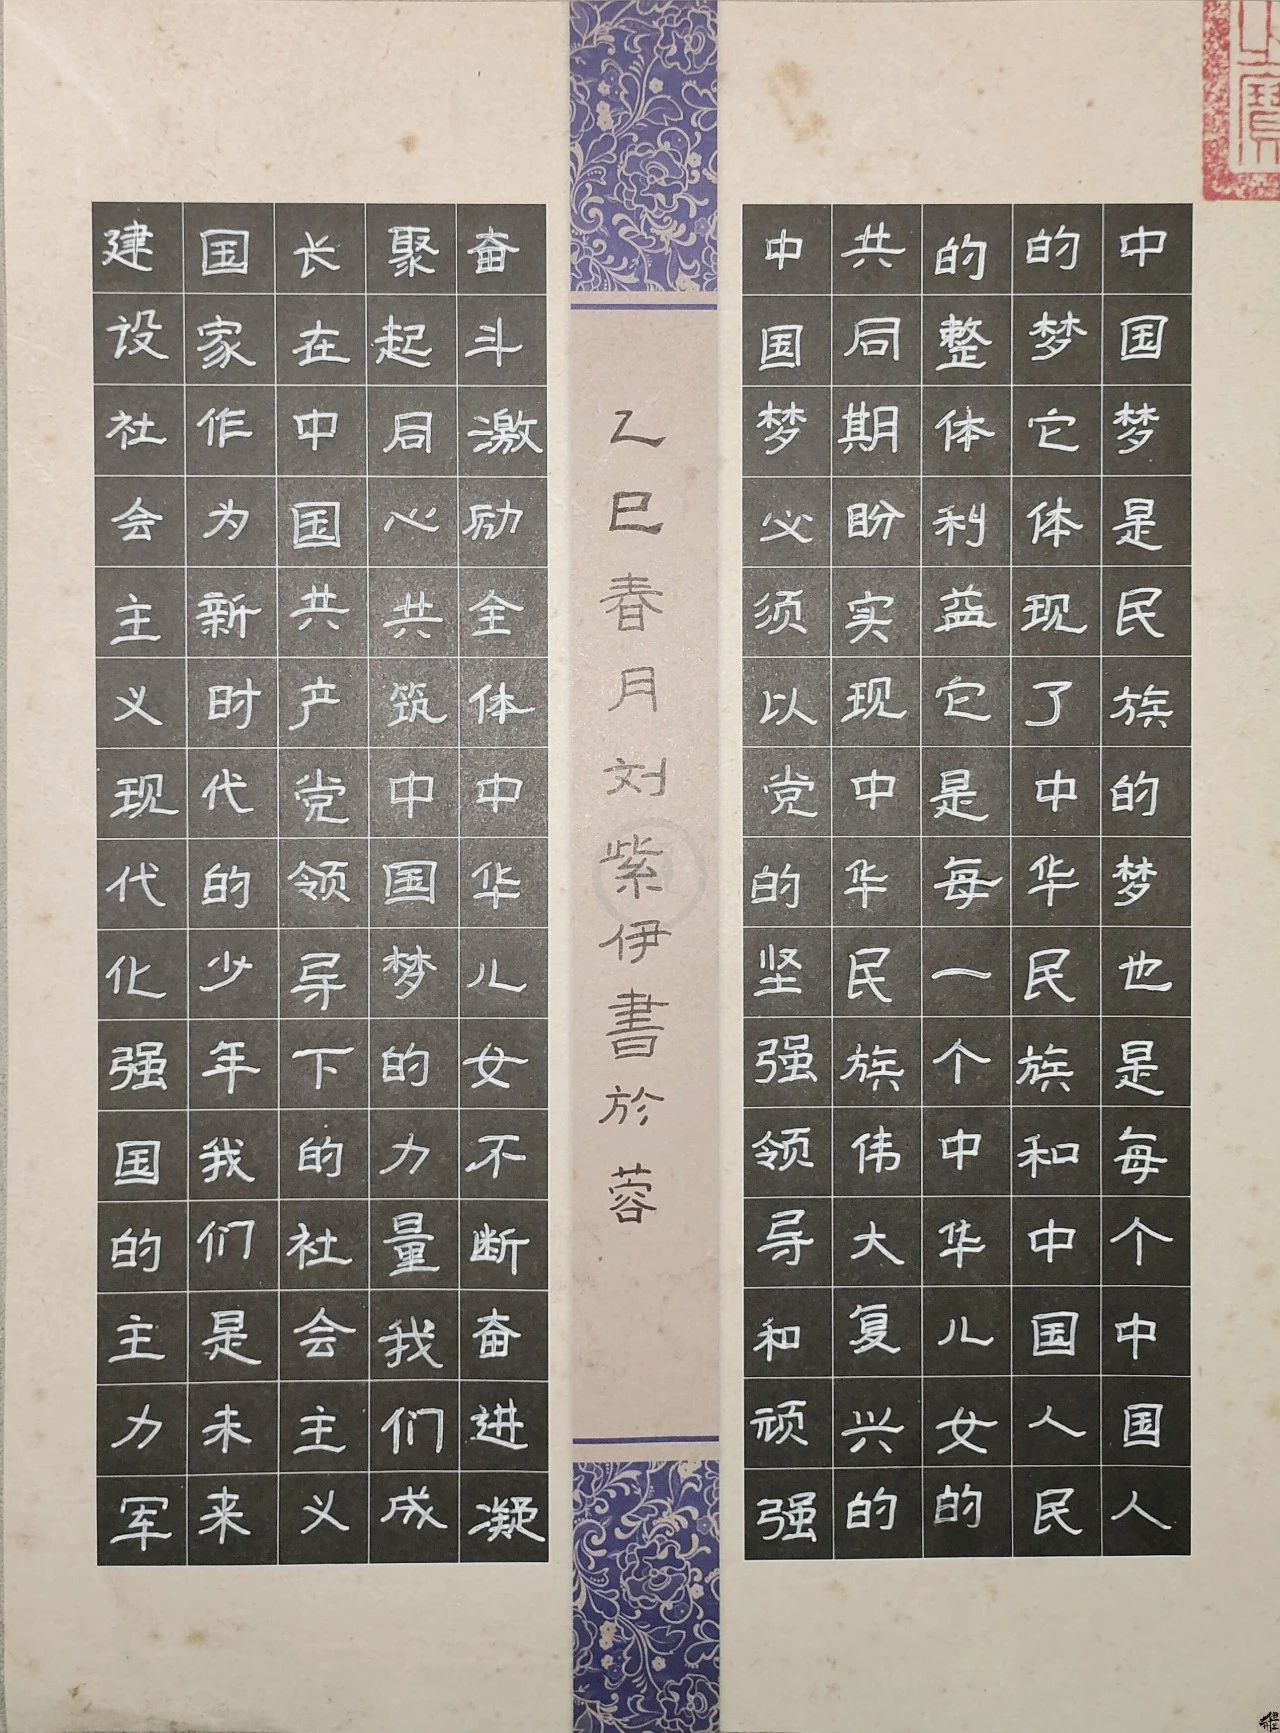 中国梦是民族的梦也是每个中国人
的梦它体现了中华民族和中国人民
的整体利益它是每一个中华儿女的
共同期盼实现中华民族伟大复兴的
中国梦必须以党的坚强领导和顽强
奋斗激励全体中华儿女不断奋进凝
聚起同心共筑中国梦的力量我们成
长在中国共产党领导下的社会主义
国家作为新时代的少年我们是未来
建设社会主义现代化强国的主力军
乙巳春月刘紫伊書於蓉